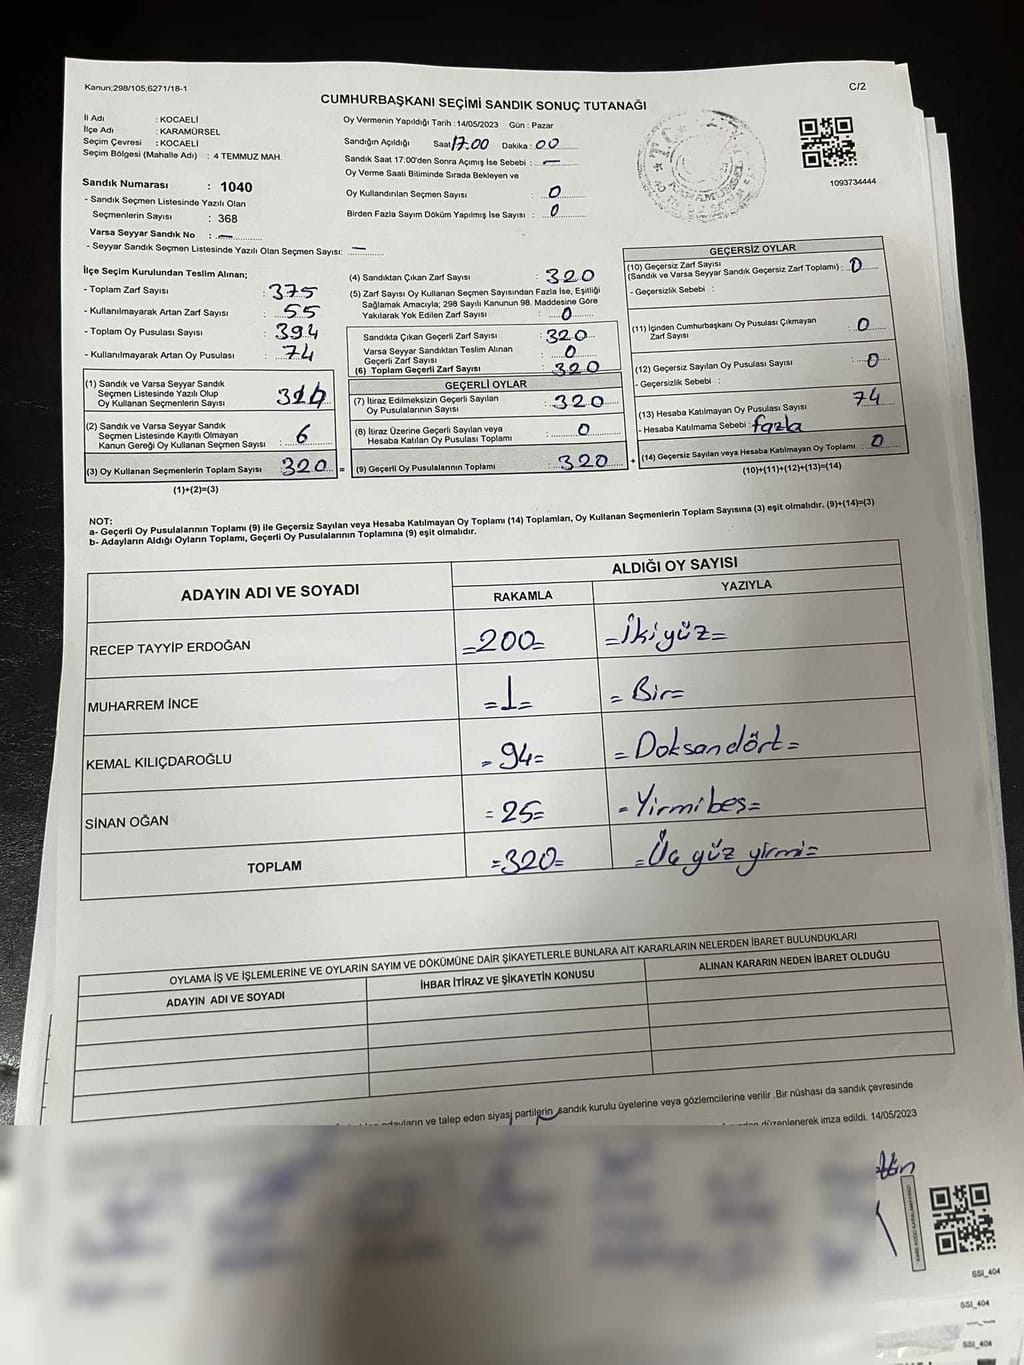 Kanun;298/105;6271/18-1
C/2
CUMHURBAŞKANI SEÇİMİ SANDIK SONUÇ TUTANAĞI
İl Adı : KOCAELİ
İlçe Adı : KARAMÜRSEL
Seçim Çevresi : KOCAELİ
Seçim Bölgesi (Mahalle Adı) : 4 TEMMUZ MAH.
Sandık Numarası : 1040
- Sandık Seçmen Listesinde Yazılı Olan
Seçmenlerin Sayısı : 368
Varsa Seyyar Sandık No : —
- Seyyar Sandık Seçmen Listesinde Yazılı Olan Seçmen Sayısı: —
Oy Vermenin Yapıldığı Tarih :14/05/2023 Gün : Pazar
Sandığın Açıldığı Saat 17.00 Dakika : 00
Sandık Saat 17:00'den Sonra Açımış İse Sebebi : —
Oy Verme Saati Bitiminde Sırada Bekleyen ve
Oy Kullandırılan Seçmen Sayısı : 0
Birden Fazla Sayım Döküm Yapılmış İse Sayısı : 0
1093734444
İlçe Seçim Kurulundan Teslim Alınan;
- Toplam Zarf Sayısı : 375
- Kullanılmayarak Artan Zarf Sayısı : 55
- Toplam Oy Pusulası Sayısı : 394
- Kullanılmayarak Artan Oy Pusulası : 74
(1) Sandık ve Varsa Seyyar Sandık
Seçmen Listesinde Yazılı Olup
Oy Kullanan Seçmenlerin Sayısı : 314
(2) Sandık ve Varsa Seyyar Sandık
Seçmen Listesinde Kayıtlı Olmayan
Kanun Gereği Oy Kullanan Seçmen Sayısı : 6
(3) Oy Kullanan Seçmenlerin Toplam Sayısı : 320 =
(1)+(2)=(3)
(4) Sandıktan Çıkan Zarf Sayısı : 320
(5) Zarf Sayısı Oy Kullanan Seçmen Sayısından Fazla İse, Eşitliği
Sağlamak Amacıyla; 298 Sayılı Kanunun 98. Maddesine Göre
Yakılarak Yok Edilen Zarf Sayısı : 0
Sandıkta Çıkan Geçerli Zarf Sayısı : 320
Varsa Seyyar Sandıktan Teslim Alınan
Geçerli Zarf Sayısı : 0
(6) Toplam Geçerli Zarf Sayısı : 320
GEÇERLİ OYLAR
(7) İtiraz Edilmeksizin Geçerli Sayılan
Oy Pusulalarının Sayısı : 320
(8) İtiraz Üzerine Geçerli Sayılan veya
Hesaba Katılan Oy Pusulası Toplamı : 0
(9) Geçerli Oy Pusulalarının Toplamı : 320 +
GEÇERSİZ OYLAR
(10) Geçersiz Zarf Sayısı
(Sandık ve Varsa Seyyar Sandık Geçersiz Zarf Toplamı) : 0
- Geçersizlik Sebebi :
(11) İçinden Cumhurbaşkanı Oy Pusulası Çıkmayan
Zarf Sayısı : 0
(12) Geçersiz Sayılan Oy Pusulası Sayısı : 0
- Geçersizlik Sebebi :
(13) Hesaba Katılmayan Oy Pusulası Sayısı 74
- Hesaba Katılmama Sebebi : fazla
(14) Geçersiz Sayılan veya Hesaba Katılmayan Oy Toplamı : 0
(10)+(11)+(12)+(13)=(14)
NOT:
a- Geçerli Oy Pusulalarının Toplamı (9) ile Geçersiz Sayılan veya Hesaba Katılmayan Oy Toplamı (14) Toplamları, Oy Kullanan Seçmenlerin Toplam Sayısına (3) eşit olmalıdır. (9)+(14)=(3)
b- Adayların Aldığı Oyların Toplamı, Geçerli Oy Pusulalarının Toplamına (9) eşit olmalıdır.
ADAYIN ADI VE SOYADI
ALDIĞI OY SAYISI
RAKAMLA YAZIYLA
RECEP TAYYİP ERDOĞAN =200= =İkiyüz=
MUHARREM İNCE =1= =Bir=
KEMAL KILIÇDAROĞLU =94= =Doksandört=
SİNAN OĞAN =25= =Yirmibeş=
TOPLAM =320= =Üç yüz yirmi=
OYLAMA İŞ VE İŞLEMLERİNE VE OYLARIN SAYIM VE DÖKÜMÜNE DAİR ŞİKAYETLERLE BUNLARA AİT KARARLARIN NELERDEN İBARET BULUNDUKLARI
ADAYIN ADI VE SOYADI İHBAR İTİRAZ VE ŞİKAYETİN KONUSU ALINAN KARARIN NEDEN İBARET OLDUĞU
ve talep eden siyasi partilerin sandık kurulu üyelerine veya gözlemcilerine verilir .Bir nüshası da sandık çevresinde
düzenlenerek imza edildi. 14/05/2023
SSI_404
SSI_404
SSI_404